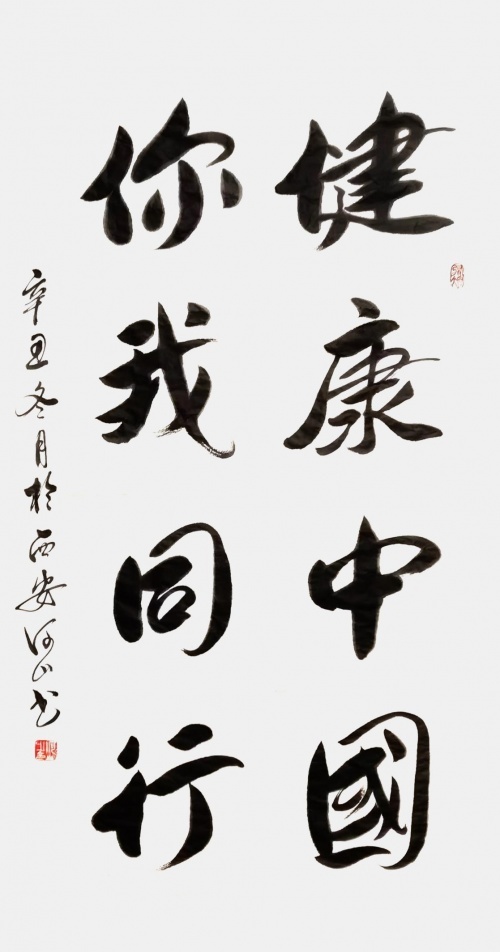 健康中國
你我同行
辛丑冬月於西安河山书